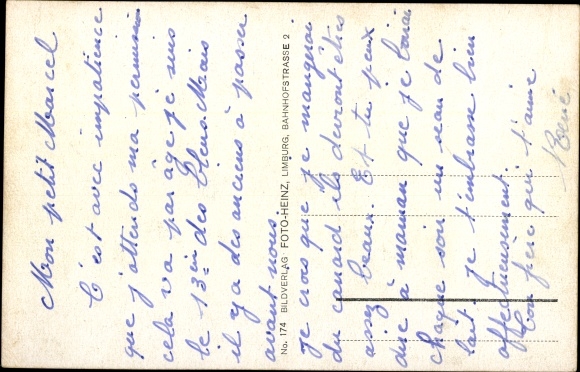 Mon petit Marcel
C'est avec impatience
que j'attends ma permission
cela va par âge je suis
le 13ème des bleus. Mais
il y a des anciens à passer
avant nous.
No. 174 BILDVERLAG FOTO-HEINZ, LIMBURG, BAHNHOFSTRASSE 2
je crois que je mangerai
du canard ils devront êtres
assez beaux. Et tu peux
dire à maman que je boirai
chaque soir un seau de
lait. Je t'embrasse bien
affectueusement.
Ton frère qui t'aime
René